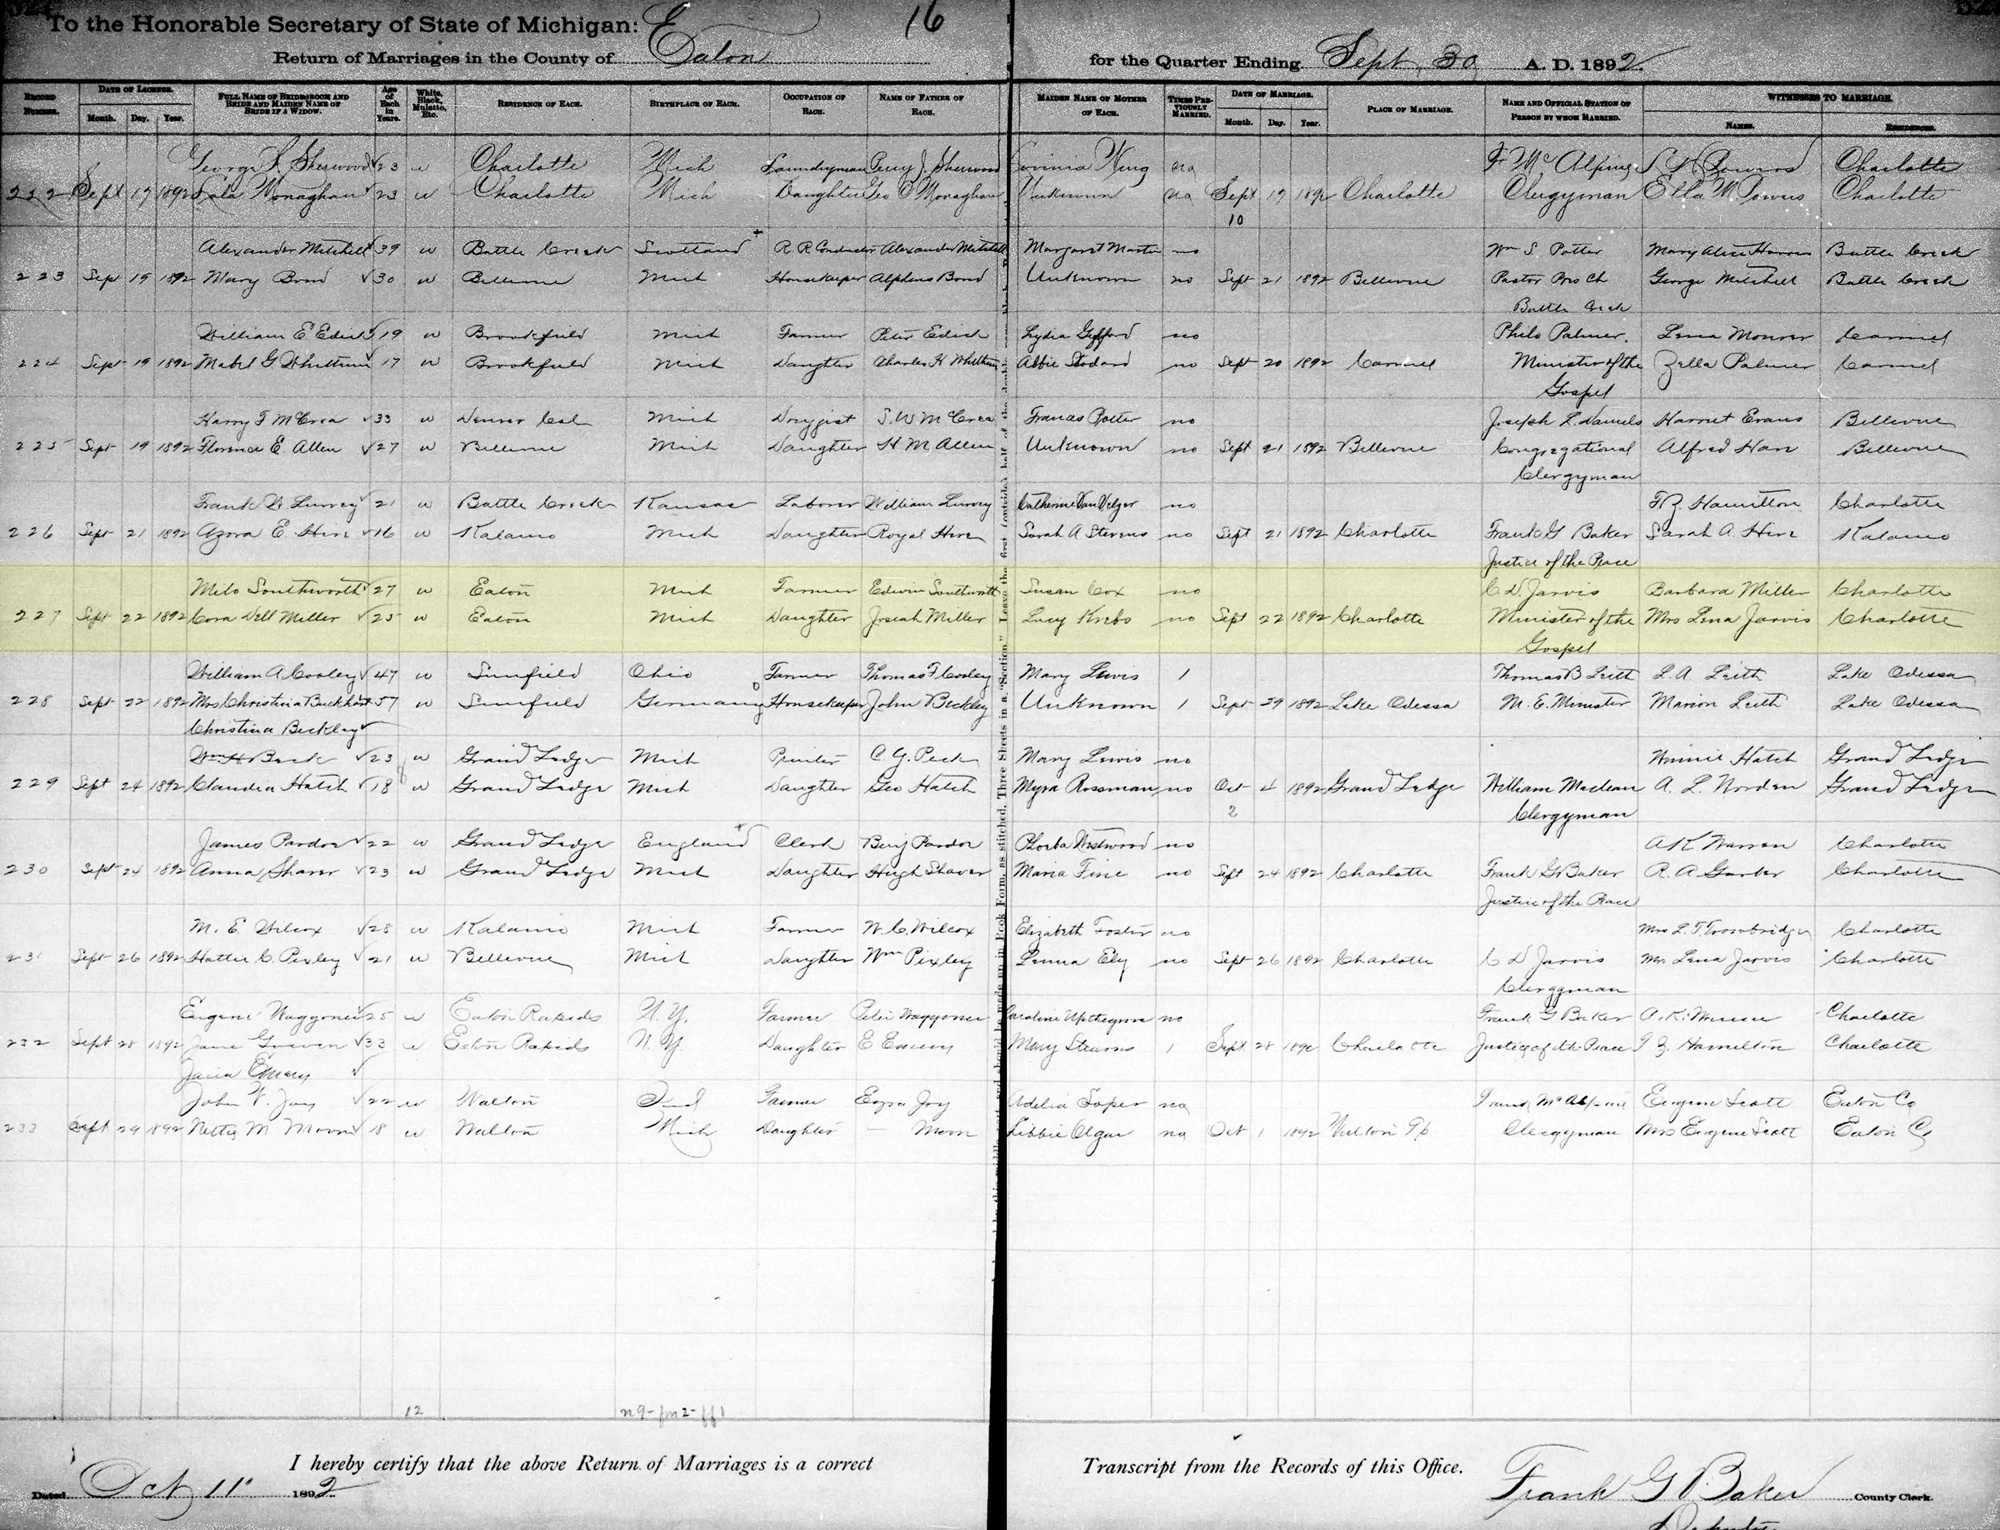 To the Honorable Secretary of State of Michigan: 16
Return of Marriages in the County of Eaton for the Quarter Ending Sept 30 A. D. 1892.
RECORD NUMBER. DATE OF LICENSE. Month. Day. Year. FULL NAME OF BRIDEGROOM AND BRIDE AND MAIDEN NAME OF BRIDE IF A WIDOW. Age of Each in Years. White, Black, Mulatto, Etc. RESIDENCE OF EACH. BIRTHPLACE OF EACH. OCCUPATION OF EACH. NAME OF FATHER OF EACH. MAIDEN NAME OF MOTHER OF EACH. TIMES PREVIOUSLY MARRIED. DATE OF MARRIAGE. Month. Day. Year. PLACE OF MARRIAGE. NAME AND OFFICIAL STATION OF PERSON BY WHOM MARRIED. WITNESSES TO MARRIAGE. NAMES. RESIDENCES.
George Sherwood 23 w Charlotte Mich Laundryman Perry J. Sherwood Wing no F McAlpine Powers Charlotte
222 Sept 17 1892 Lola Monaghan 23 w Charlotte Mich Daughter Geo Monaghan Unknown no Sept 19 1892 Charlotte Clergyman Ella M Powers Charlotte
10
Alexander Mitchell 39 w Battle Creek Scotland R R Conductor Alexander Mitchell Margaret Martin no Wm S Potter Mary Alice Battle Creek
223 Sept 19 1892 Mary Bond 30 w Bellevue Mich Housekeeper Alpheus Bond Unknown no Sept 21 1892 Bellevue Pastor Pres Ch George Mitchell Battle Creek
Battle Creek
William E Edick 19 w Brookfield Mich Farmer Peter Edick Lydia Gifford no Philo Palmer. Lena Carmel
224 Sept 19 1892 Mabel G Whittum 17 w Brookfield Mich Daughter Charles H Whittum Abbie Stodard no Sept 20 1892 Carmel Minister of the Zella Palmer Carmel
Gospel
Harry F McCrea 33 w Denver Col Mich Drugist S. W McCrea Frances Potter no Joseph L. Daniels Harriet Evans Bellevue
225 Sept 19 1892 Florence E. Allen 27 w Bellevue Mich Daughter H M Allen Unknown no Sept 21 1892 Bellevue Congregational Alfred Bellevue
Clergyman
Frank Lurvey 21 w Battle Creek Kansas Laborer William Lurvey Catherine no Hamilton Charlotte
226 Sept 21 1892 Azora E Hine 16 w Kalamo Mich Daughter Royal Hine Sarah A Stevens no Sept 21 1892 Charlotte Frank G Baker Sarah A. Hine Kalamo
Justice of the Peace
Milo Southworth 27 w Eaton Mich Farmer Edwin Southworth Susan Cox no C D Jarvis Barbara Miller Charlotte
227 Sept 22 1892 Cora Dell Miller 25 w Eaton Mich Daughter Josiah Miller Lucy Krebs no Sept 22 1892 Charlotte Minister of the Mrs Lena Jarvis Charlotte
Gospel
William A Cooley 47 w Sunfield Ohio Farmer Thomas F Cooley Mary Lewis 1 Thomas B Leith L A Leith Lake Odessa
228 Sept 22 1892 Mrs Christina 57 w Sunfield Germany Housekeeper John Beckley Unknown 1 Sept 29 1892 Lake Odessa M. E. Minister Marion Leith Lake Odessa
Christina Beckley
23 w Grand Ledge Mich C. G. Peck Mary Lewis no Minnie Hatch Grand Ledge
229 Sept 24 1892 Claudia Hatch 18 w Grand Ledge Mich Daughter Geo Hatch Myra Rossman no Oct 4 1892 Grand Ledge William Maclean A. L. Norden Grand Ledge
2 Clergyman
James Pardoe 22 w Grand Ledge England Clerk Benj Pardoe Westwood no A K Warren Charlotte
230 Sept 24 1892 Anna Shaver 23 w Grand Ledge Mich Daughter Hugh Shaver Maria Fine no Sept 24 1892 Charlotte Frank G Baker R. A. Garber Charlotte
Justice of the Peace
M. E. Wilcox 28 w Kalamo Mich Farmer W. C. Wilcox Elizabeth Foster no Mrs L. T. Trowbridge Charlotte
231 Sept 26 1892 Hattie C. Pixley 21 w Bellevue Mich Daughter Wm Pixley Ely no Sept 26 1892 Charlotte C D Jarvis Mrs Lena Jarvis Charlotte
Clergyman
Eugene Waggoner 25 w Eaton Rapids N. Y. Farmer Peter Waggoner Caroline no Frank G Baker A. K. Warren Charlotte
232 Sept 28 1892 Jane 33 w Eaton Rapids N. Y. Daughter E Emery Mary Stearns 1 Sept 28 1892 Charlotte Justice of the Peace Hamilton Charlotte
Emery
John W. Joy 22 w Walton Ind Farmer Ezra Joy Adelia Soper no Frank McAlpine Eugene Scott Eaton Co
233 Sept 29 1892 Nettie M Moon 18 w Walton Mich Daughter — Moon Libbie no Oct 1 1892 Walton Tp Clergyman Mrs Eugene Scott Eaton Co
12
I hereby certify that the above Return of Marriages is a correct Transcript from the Records of this Office.
Dated Oct 11 1892 Frank G Baker County Clerk.